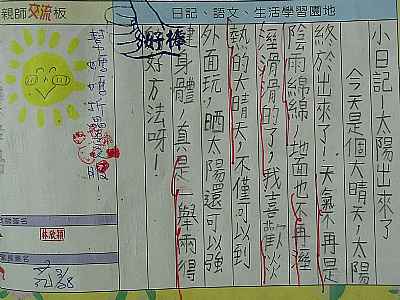 親師交流板
日記、語文、生活學習園地
好棒
小日記:太陽出來了
今天是個大晴天,太陽
終於出來了!天氣不再是
陰雨綿綿,地面也不再溼
溼滑滑的了,我喜歡炎
熱的大晴天,不僅可以到
外面玩,曬太陽還可以強
健身體,真是一舉兩得
好方法呀!
幫媽媽折疊衣服!
林欣穎